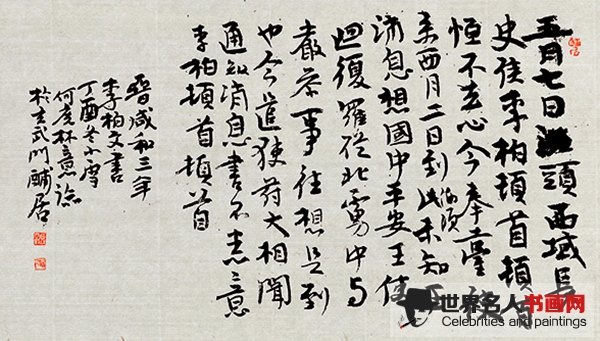 五月七日頭西域長
史侯李柏頓首頓首
恒不去心今奉臺使
来西月二日到此未知王
海頭
消息想國中平安王使
迴復羅從北虜中与
嚴參事往想是到
也今遣使苻大相聞
通知消息書不悉意
李柏頓首頓首
晉咸和三年
李柏文書
丁酉冬小雪
何度林意臨
於玄武門酺居
世界名人书画网
Celebrities and paintings